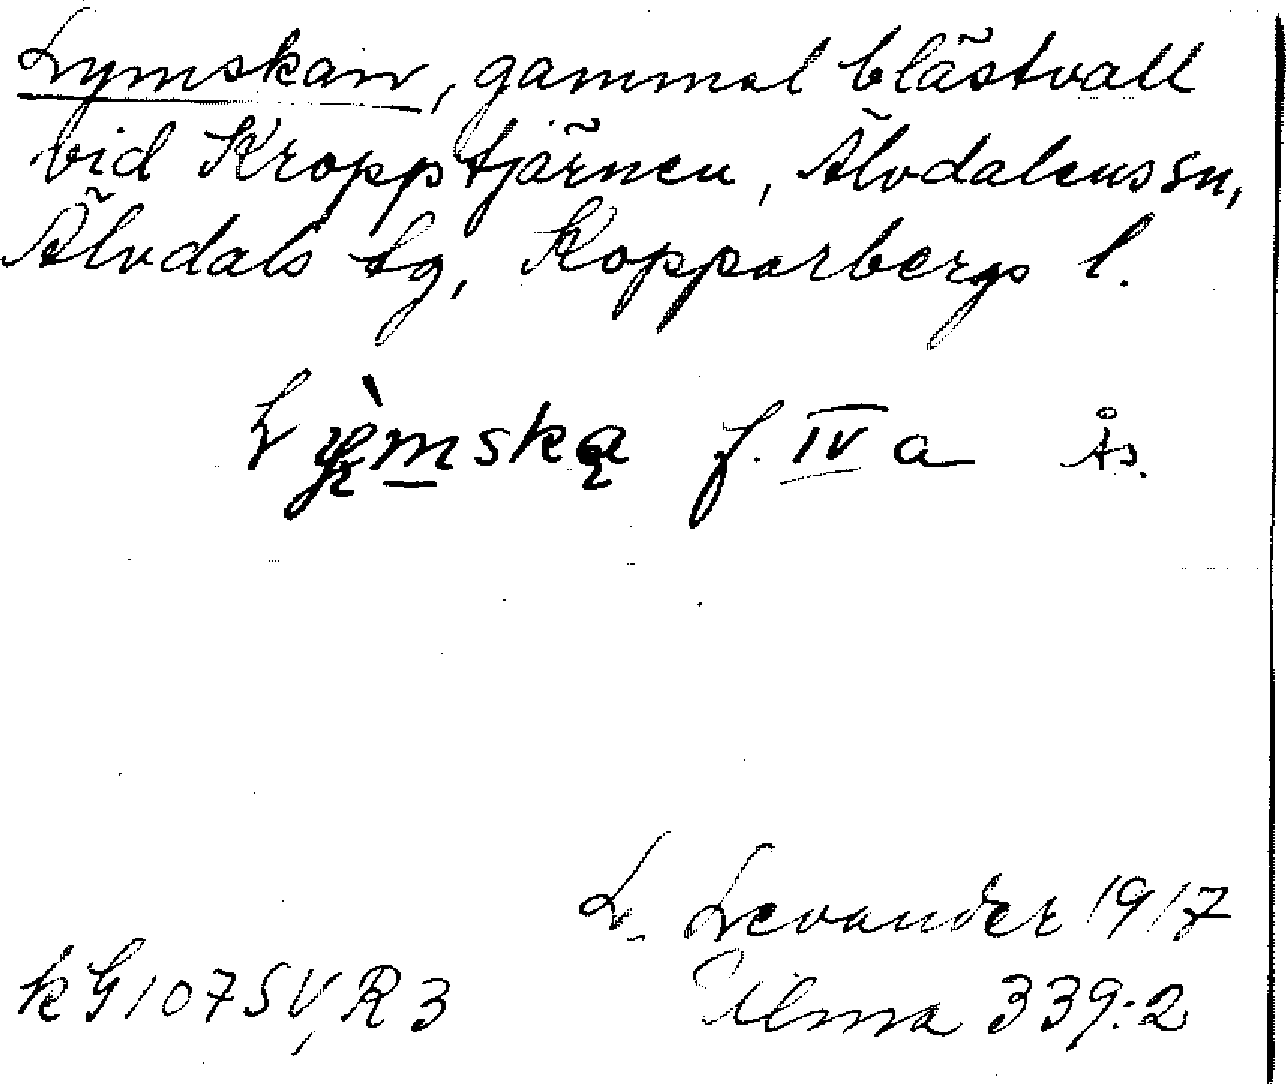 Lymskan, gammal blästvall
vid Kropptjärnen, Älvdalens sn,
Älvdals tg, Kopparbergs l.
f. IV a Ås.
L. Levander 1917
kG 107 SV, R 3 Ulma 339:2